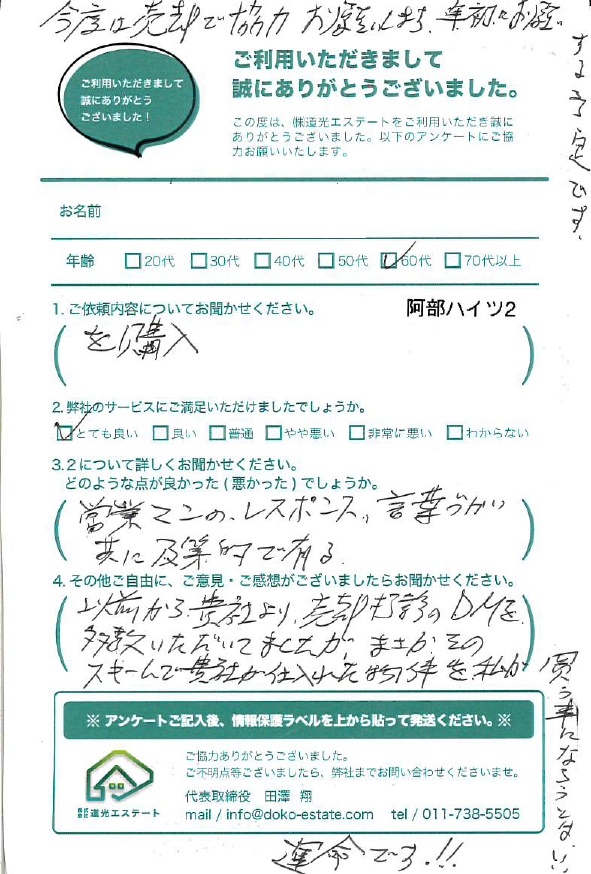 今度は売却で協力お願いします、年初にお願い
する予定です。
ご利用いただきまして
誠にありがとう
ございました！
ご利用いただきまして
誠にありがとうございました。
この度は、㈱道光エステートをご利用いただき誠に
ありがとうございました。以下のアンケートにご協
力お願いいたします。
お名前
年齢 □20代 □30代 □40代 □50代 ☑60代 □70代以上
1. ご依頼内容についてお聞かせください。 阿部ハイツ2
を購入
2. 弊社のサービスにご満足いただけましたでしょうか。
☑とても良い □良い □普通 □やや悪い □非常に悪い □わからない
3.2 について詳しくお聞かせください。
どのような点が良かった ( 悪かった ) でしょうか。
営業マンの、レスポンス、言葉づかい
共に及第的で有る
4. その他ご自由に、ご意見・ご感想がございましたらお聞かせください。
以前から貴社より、売却打診のDMを
多数いただいてましたが、まさかその
スキームで貴社が仕入れた物件を私が
買う事になろうとは、
※ アンケートご記入後、情報保護ラベルを上から貼って発送ください。※
ご協力ありがとうございました。
ご不明点等ございましたら、弊社までお問い合わせくださいませ。
株式会社 道光エステート
代表取締役 田澤 翔
mail / info@doko-estate.com tel / 011-738-5505
運命です!!